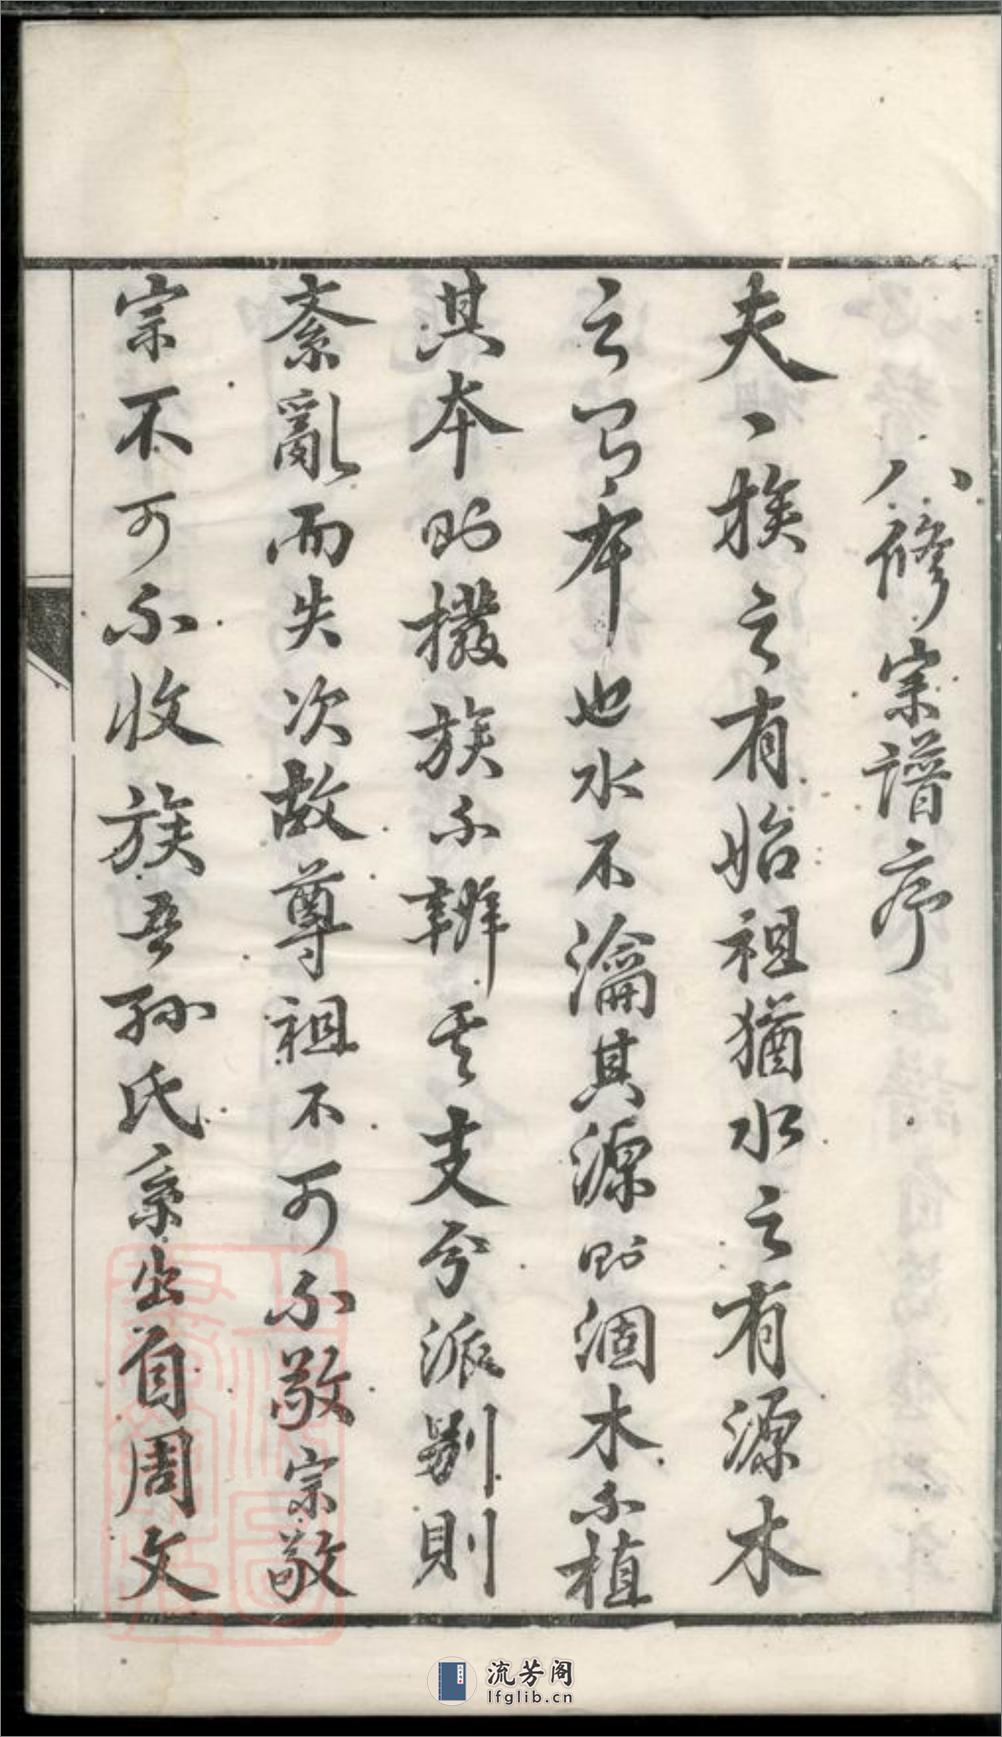 八修宗譜序
夫一族之有始祖猶水之有源木
之有本也水不瀹其源則涸木不植
其本則撥族不辨其支分派別則
紊亂而失次故尊祖不可不敬宗敬
宗不可不收族吾孫氏系出自周文
流芳阁
lfglib.cn